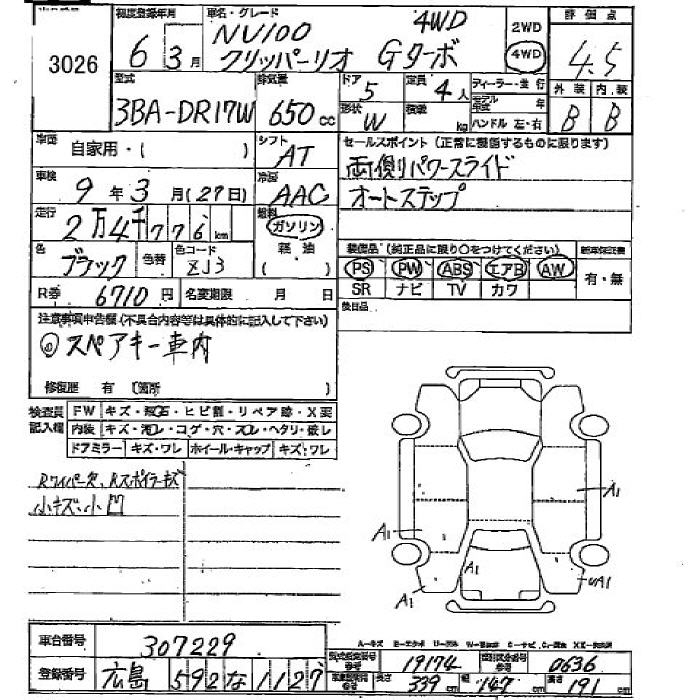 3026
初度登録年月
6年3月
車名・グレード
NV100 4WD
クリッパーリオ Gターボ
2WD
4WD
評価点
4.5
型式
3BA-DR17W
排気量
650cc
ドア
5
定員
4人
形状
W
積載
kg
ディーラー・並行
モデル年式 年
ハンドル 左・右
外装 内装
B B
車歴
自家用・( )
シフト
AT
セールスポイント(正常に機能するものに限ります)
両側パワースライド
オートステップ
車検
9年3月(27日)
冷房
AAC
走行
2万4千776km
燃料
ガソリン
軽油
( )
色
ブラック
色替
色コード
ZJ3
装備品(純正品に限り○をつけてください)
PS PW ABS エアB AW
SR ナビ TV カワ
新車保証書
有・無
R券 6710円
名変期限 月 日
後日品
注意事項申告欄(不具合内容等は具体的に記入して下さい)
◎スペアキー車内
修復歴 有 〔箇所 )
検査員記入欄
FW キズ・飛石・ヒビ割・リペア跡・X要
内装 キズ・汚レ・コゲ・穴・スレ・ヘタリ・破レ
ドアミラー キズ・ワレ ホイール・キャップ キズ・ワレ
Rワイパー欠、Rスポイラーキズ
小キズ、小凹
A1
A1
A1
A1
A1
車台番号 307229
登録番号 広島 592 な 1127
型式指定番号 参考 19174
類別区分番号 参考 0636
長さ 339cm 幅 147cm 高さ 191cm